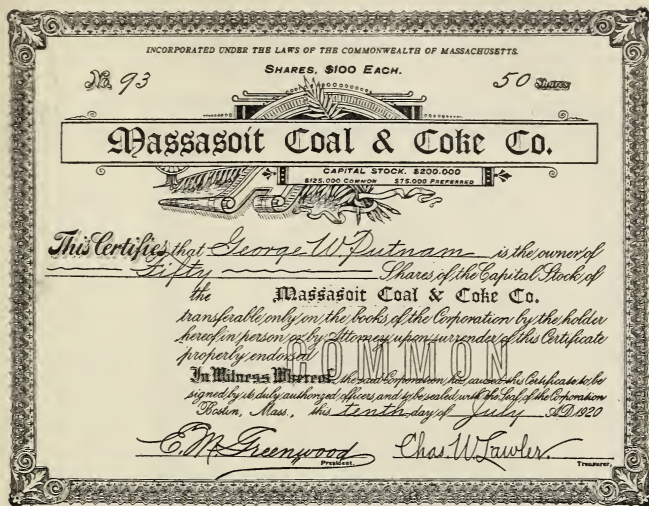 INCORPORATED UNDER THE LAWS OF THE COMMONWEALTH OF MASSACHUSETTS.
SHARES, $100 EACH.
No. 93
50 Shares
Massasoit Coal & Coke Co.
CAPITAL STOCK. $200.000
$125.000 COMMON $75.000 PREFERRED
This Certifies that George W Putnam is the owner of
Fifty Shares of the Capital Stock of
the Massasoit Coal & Coke Co.
transferable only on the books of the Corporation by the holder
hereof in person or by Attorney upon surrender of this Certificate
properly endorsed
COMMON
In Witness Whereof, the said Corporation has caused this Certificate to be
signed by its duly authorized officers and to be sealed with the Seal of the Corporation
Boston, Mass., this tenth day of July A.D. 1920
E. M. Greenwood Chas. W. Lawler.
President. Treasurer.